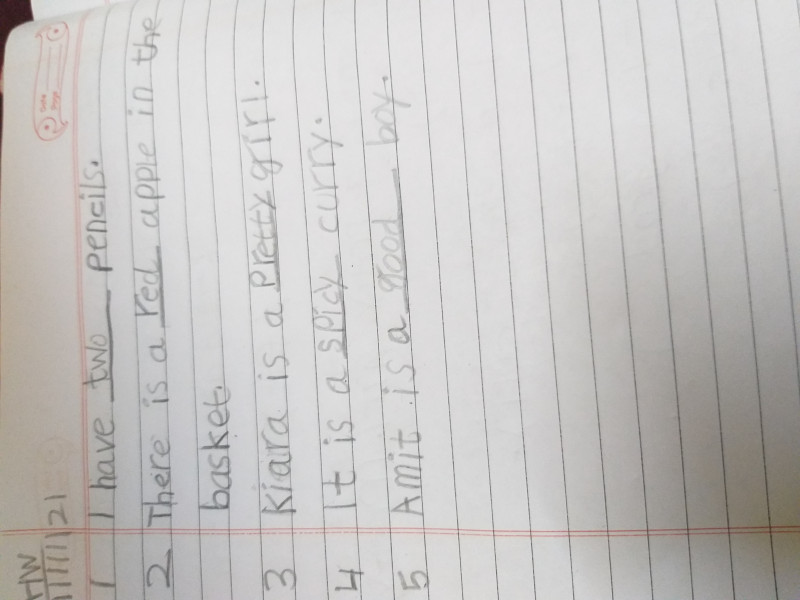 HW
11/11/21
1 I have two pencils.
2 There is a red apple in the
basket.
3 Kiara is a pretty girl.
4 It is a spicy curry.
5 Amit is a good boy.
Date
Page